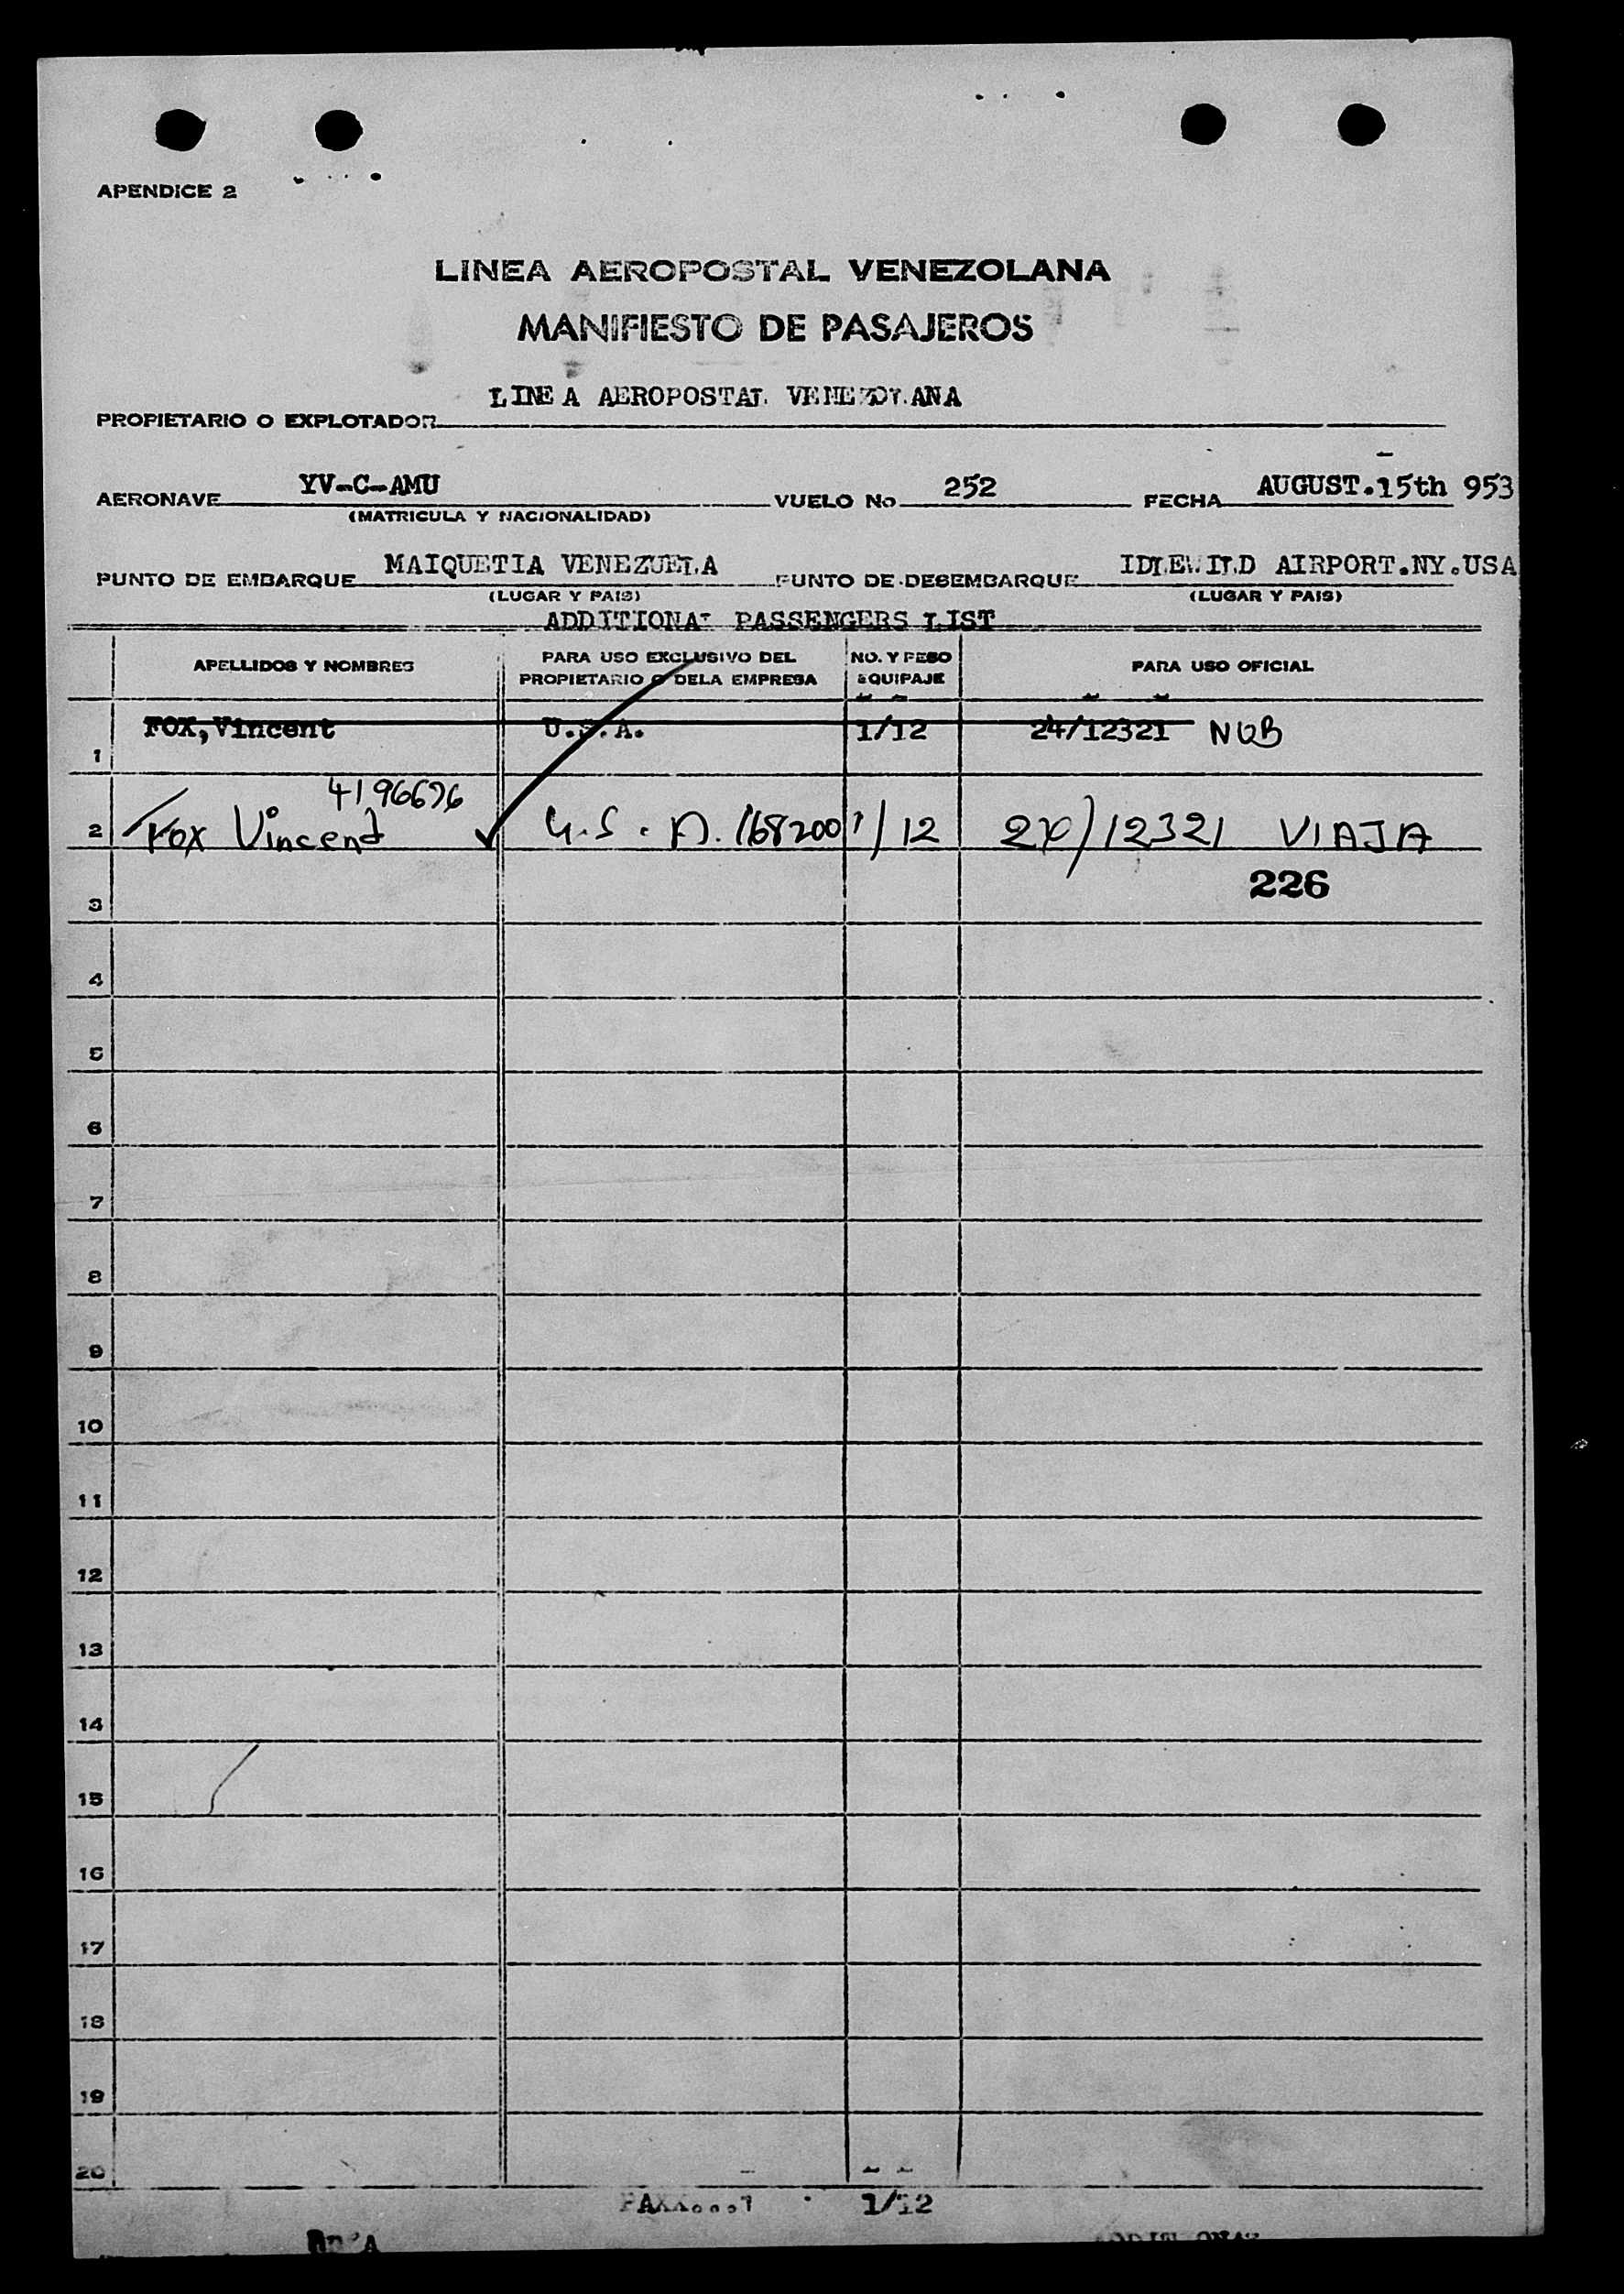 APENDICE 2
LINEA AEROPOSTAL VENEZOLANA
MANIFIESTO DE PASAJEROS
LINEA AEROPOSTAL VENEZOLANA
PROPIETARIO O EXPLOTADOR
AERONAVE YV-C-AMU VUELO No 252 FECHA AUGUST.15th 953
(MATRICULA Y NACIONALIDAD)
PUNTO DE EMBARQUE MAIQUETIA VENEZUELA PUNTO DE DESEMBARQUE IDLEWILD AIRPORT.NY.USA
(LUGAR Y PAIS) (LUGAR Y PAIS)
ADDITIONAL PASSENGERS LIST
APELLIDOS Y NOMBRES PARA USO EXCLUSIVO DEL PROPIETARIO O DELA EMPRESA NO. Y PESO EQUIPAJE PARA USO OFICIAL
1 FOX,Vincent U.S.A. 1/12 24/12321 NOB
4196696
2 Fox Vincent U.S.A. 168200 1/12 24/12321 VIAJA
226
3
4
5
6
7
8
9
10
11
12
13
14
15
16
17
18
19
20
1/12